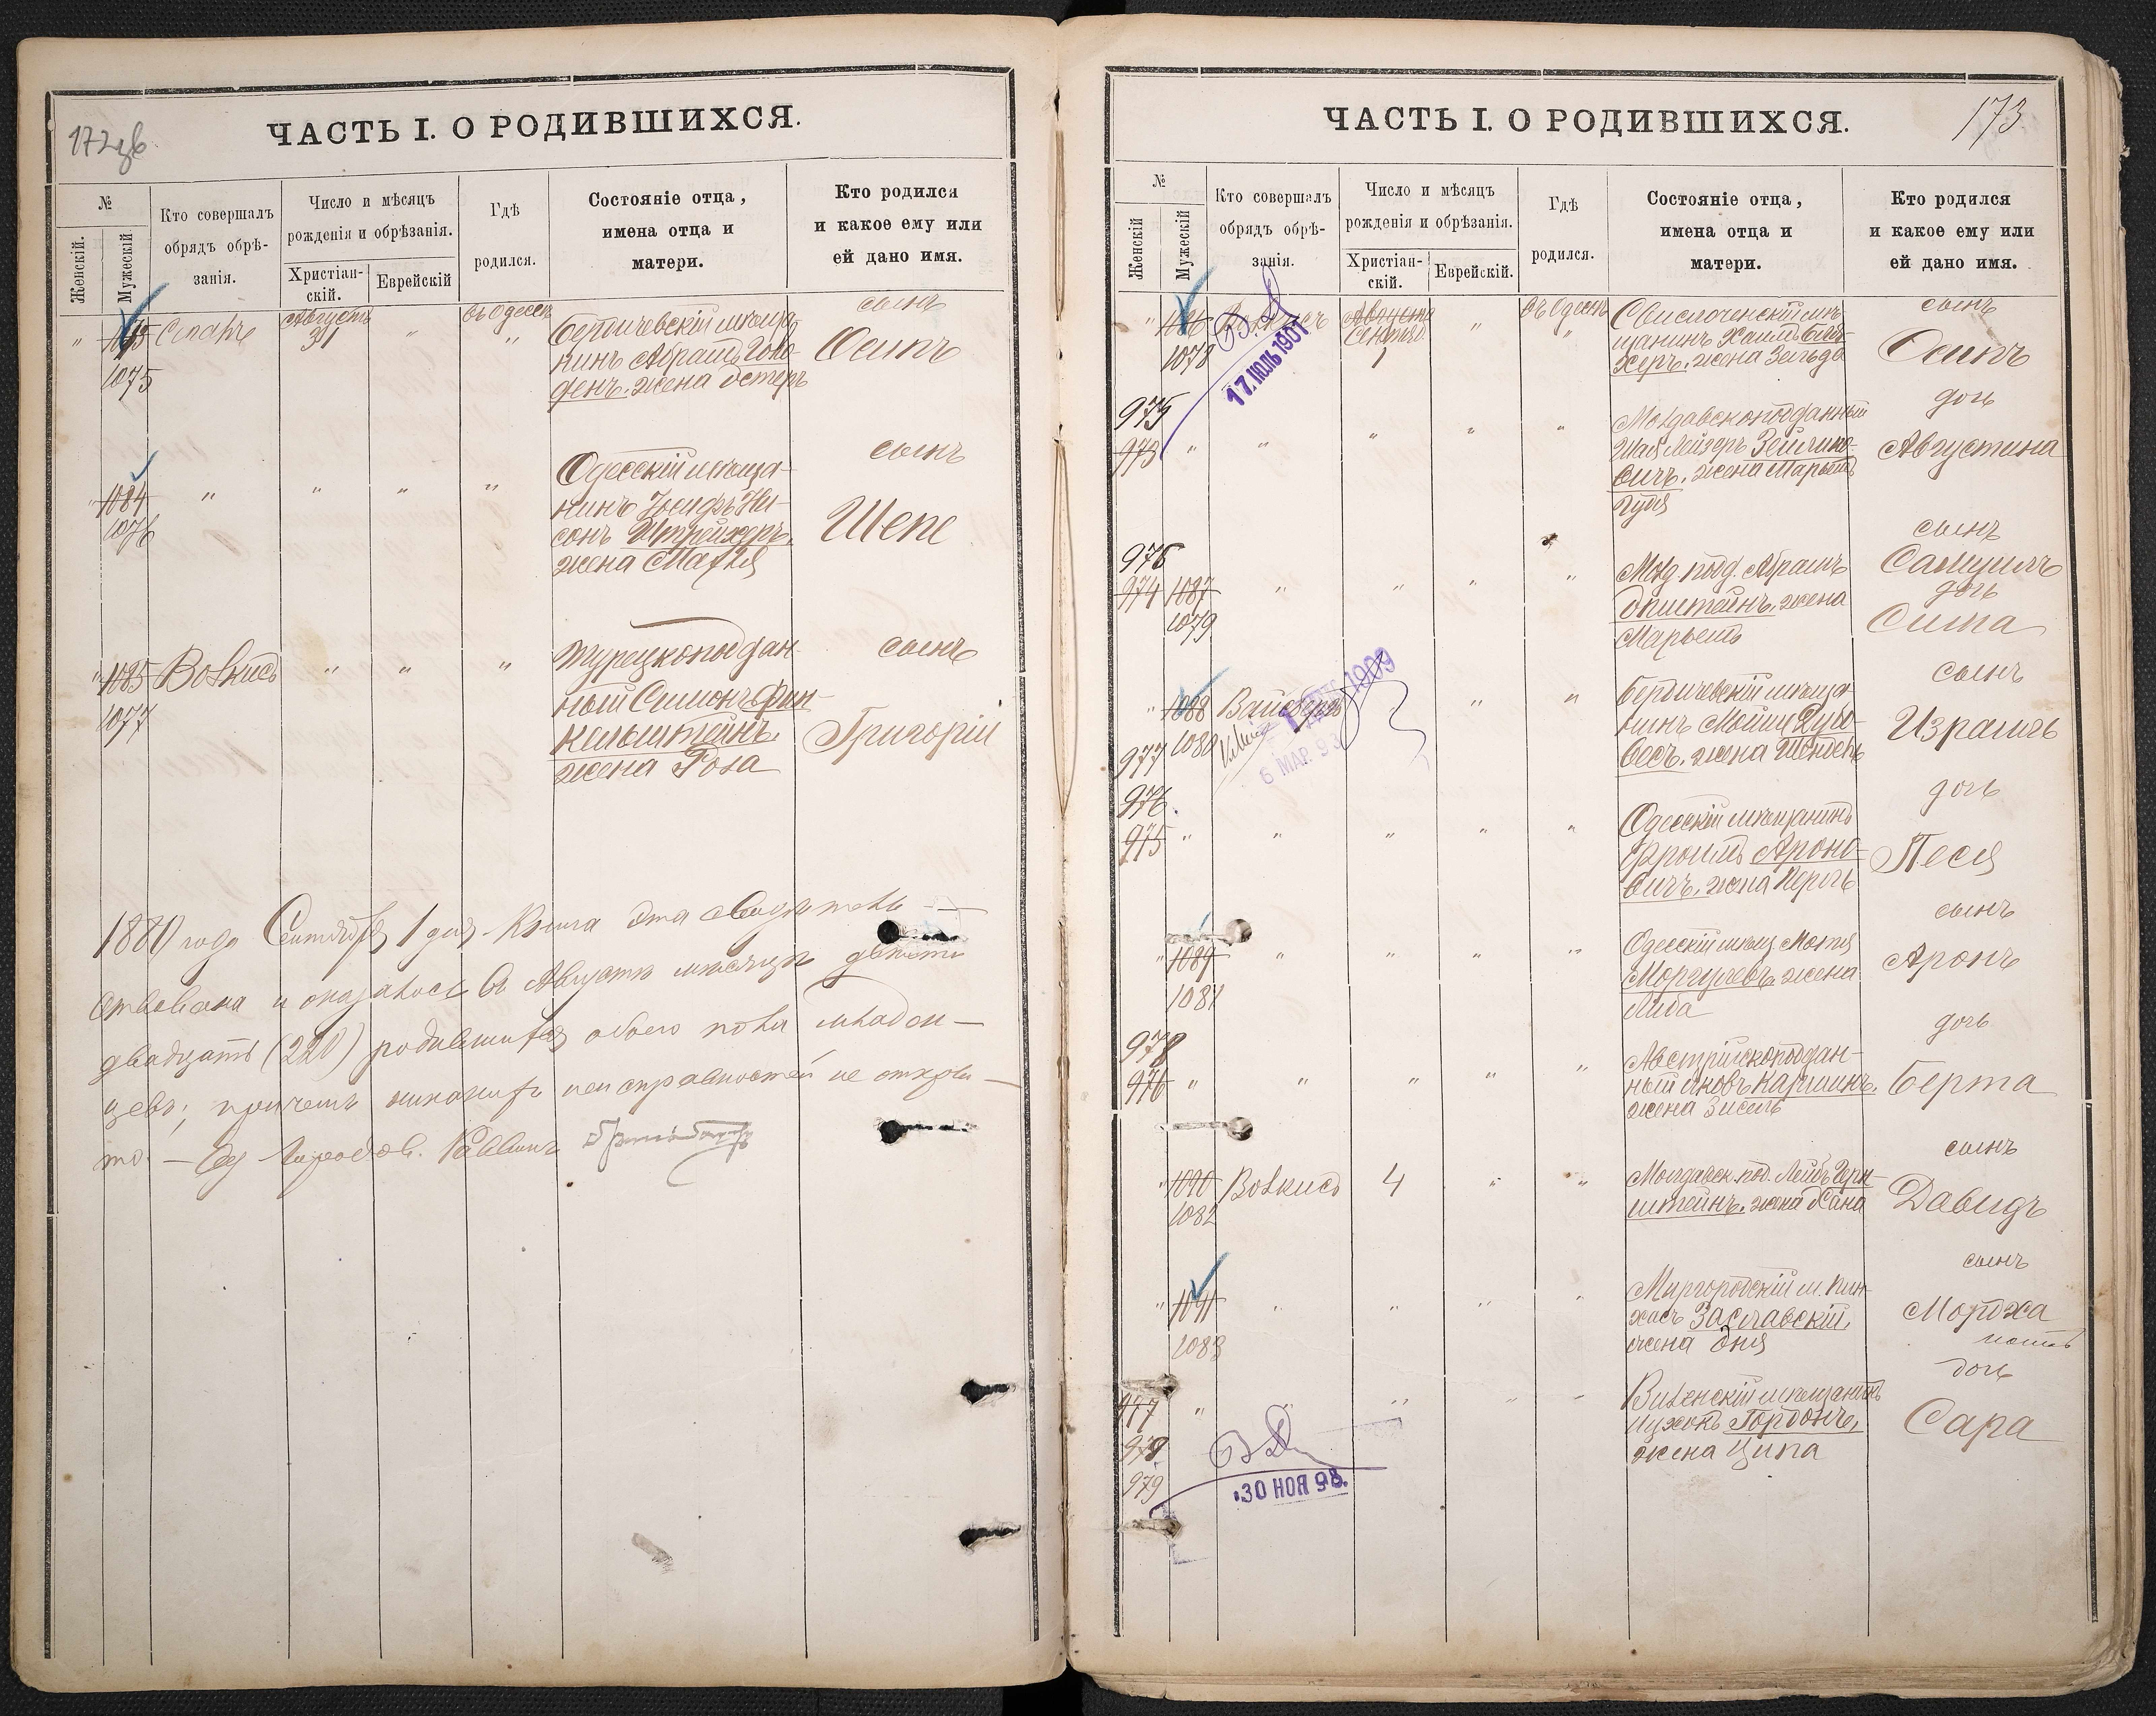 172об
ЧАСТЬ I. О РОДИВШИХСЯ.
№
Женскій.
Мужескій
Кто совершалъ
обрядъ обрѣ-
занія.
Число и мѣсяцъ
рожденія и обрѣзанія.
Христіан-
скій.
Еврейскій
Гдѣ
родился.
Состояніе отца,
имена отца и
матери.
Кто родился
и какое ему или
ей дано имя.
" 1083 Августъ 31 " въ Одессѣ "
1075
Бердичевскій мѣща-
нинъ Абрамъ
денъ. жена Эстеръ
сынъ
Осипъ
" 1084 " " " "
1076
Одесскій мѣща-
нинъ Іосифъ Ни-
сонъ Штрейхеръ,
жена Махля
сынъ
Шепе
" 1085 Волкисъ " " "
1077
Турецкоподдан-
ный Симонъ Фин-
кельштейнъ,
жена Роза
сынъ
Григорій
года Сентября 1 дня. Книга эта свидѣтель-
ствована и оказалось въ Августѣ мѣсяцѣ двѣсти
двадцать (220) родившихся обоего пола младен-
цевъ; причемъ никакихъ неисправностей не откры-
то. — Раввинъ
173
ЧАСТЬ I. О РОДИВШИХСЯ.
№
Женскій
Мужескій
Кто совершалъ
обрядъ обрѣ-
занія.
Число и мѣсяцъ
рожденія и обрѣзанія.
Христіан-
скій.
Еврейскій.
Гдѣ
родился.
Состояніе отца,
имена отца и
матери.
Кто родился
и какое ему или
ей дано имя.
" 1086 Волкисъ Августа " въ Одессѣ "
1078 1
17. ІЮЛЬ 1901
Свислоченскій мѣ-
щанинъ Хаимъ
херъ. жена Зельда
сынъ
Осипъ
975
973 " " " " "
Молдавскоподданный
Лейзеръ Зейлико-
вичъ. жена Марьемъ
Гудя
дочь
Августина
976
974 1087 " " " "
1079
Молд. подд. Абрамъ
Эпштейнъ. жена
Марьемъ
сынъ
Самуилъ
дочь
Сима
" 1088 Вайсбергъ " "
1080
977
1909
6 МАР. 93
Бердичевскій мѣща-
нинъ Мойше Дубо-
весъ. жена Шейндель
сынъ
Израиль
976.
975 " " " " "
Одесскій мѣщанинъ
Фроимъ Ароно-
вичъ. жена Перль
дочь
Песя
" 1089 " " " "
1081
Одесскій мѣщ. Мотя
Моргулевъ. жена
Люба
сынъ
Аронъ
978
976 " " " " "
Австрійскоподдан-
ный Яковъ Карлинъ.
жена Зисель
дочь
Берта
" 1090 Волкисъ 4 " "
1082
Молдавск. под. Лейбъ Герн-
штейнъ. жена Хана
сынъ
Давидъ
" 1091 " " " "
1083
Миргородскій м. Пин-
хасъ Заславскій,
жена Эня
сынъ
Мордха
977 " " " "
978
979
30 НОЯ 98.
Виленскій мѣщанинъ
Ицхокъ Гордонъ,
жена Ципа
дочь
Сара